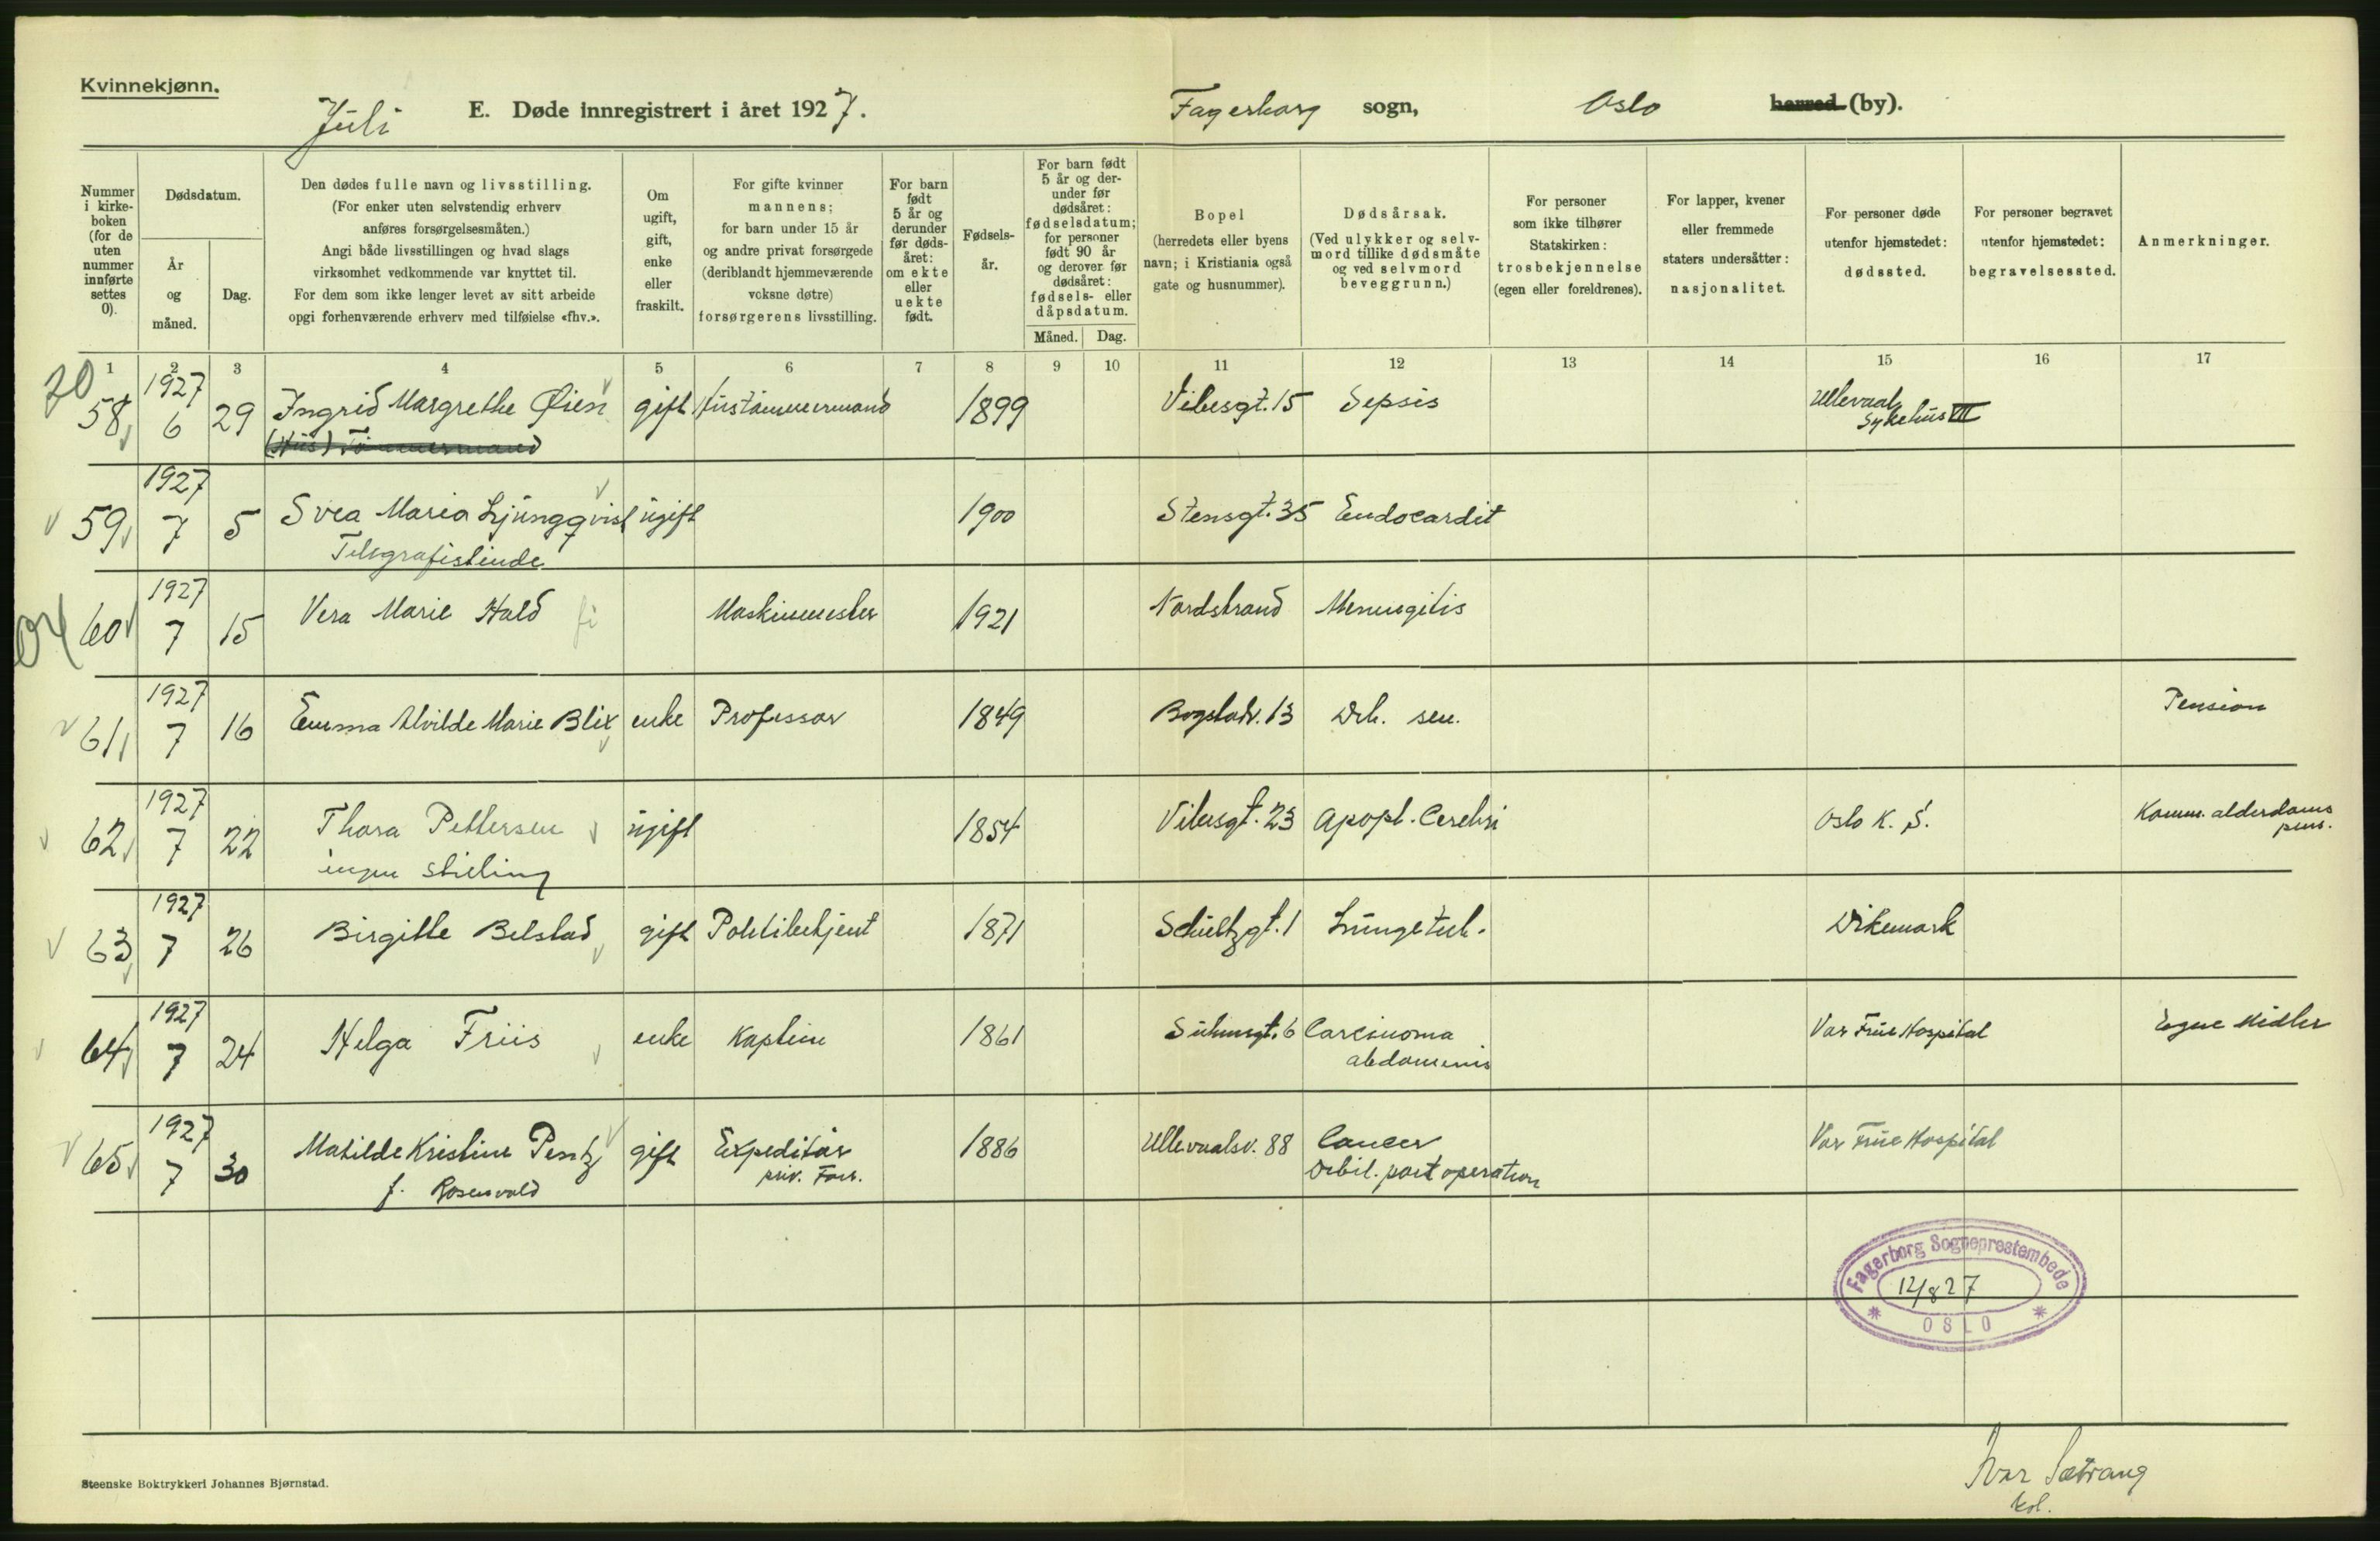 Kvinnekjønn.
Juli E. Døde innregistrert i året 1927. Fagerborg sogn, Oslo herred (by).
Nummer i kirkeboken (for de uten nummer innførte settes 0).
Dødsdatum.
År og måned.
Dag.
Den dødes fulle navn og livsstilling.
(For enker uten selvstendig erhverv
anføres forsørgelsesmåten.)
Angi både livsstillingen og hvad slags
virksomhet vedkommende var knyttet til.
For dem som ikke lenger levet av sitt arbeide
opgi forhenværende erhverv med tilføielse «fhv.».
Om ugift, gift, enke eller fraskilt.
For gifte kvinner
mannens;
for barn under 15 år
og andre privat forsørgede
(deriblandt hjemmeværende
voksne døtre)
forsørgerens livsstilling.
For barn født 5 år og derunder før dødsåret: om ekte eller uekte født.
Fødselsår.
For barn født 5 år og derunder før dødsåret: fødselsdatum; for personer født 90 år og derover før dødsåret: fødsels- eller dåpsdatum.
Måned. Dag.
Bopel
(herredets eller byens
navn; i Kristiania også
gate og husnummer).
Dødsårsak.
(Ved ulykker og selvmord tillike dødsmåte og ved selvmord beveggrunn.)
For personer
som ikke tilhører
Statskirken:
trosbekjennelse
(egen eller foreldrenes).
For lapper, kvener
eller fremmede
staters undersåtter:
nasjonalitet.
For personer døde
utenfor hjemstedet:
dødssted.
For personer begravet
utenfor hjemstedet:
begravelsessted.
Anmerkninger.
1 2 3 4 5 6 7 8 9 10 11 12 13 14 15 16 17
20
58 1927 6 29 Ingrid Margrethe Øien gift Hustømmermand 1899 Vibesgt. 15 Sepsis Ullevaal Sykehus VII
(Hus) Tømmermand
59 1927 7 5 Svea Maria Ljungqvist ugift 1900 Stensgt. 35 Endocardit
Telegrafistinde
60 1927 7 15 Vera Marie Hald Maskinmester 1921 Nordstrand Meningitis
61 1927 7 16 Emma Alvilde Marie Blix enke Professor 1849 Bogstadv. 13 Deb. sen. Pension
62 1927 7 22 Thora Pettersen ugift 1854 Vibesgt. 23 Apopl. Cerebri Oslo K. S. Komm. alderdoms pens.
ingen stilling
63 1927 7 26 Birgitte Belstad gift Politibetjent 1871 Schultzgt. 1 Lungetub. Dikemark
64 1927 7 24 Helga Friis enke Kaptein 1861 Suhmsgt. 6 Carcinoma abdominis Vor Frue Hospital Egne Midler
65 1927 7 30 Matilde Kristine Pentz gift Expeditør 1886 Ullevaalsv. 88 Cancer Vor Frue Hospital
f. Rosenvold priv. Forr. Debil. post operation
Fagerborg Sogneprestembede
12/8 27
OSLO
Steenske Boktrykkeri Johannes Bjørnstad.
Ivar Sætrang